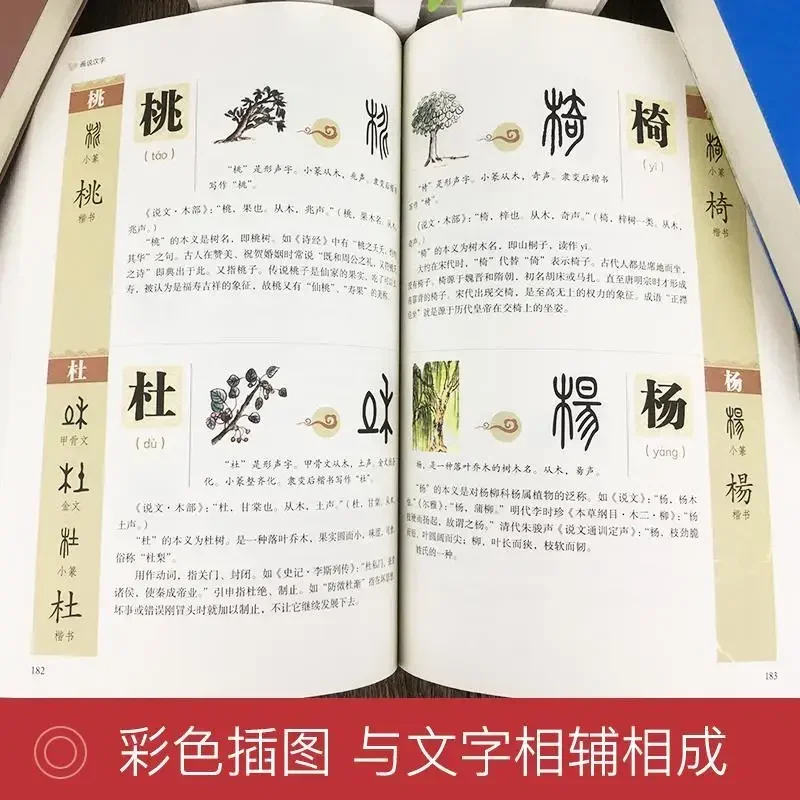 画说汉字
桃
小篆
桃
楷书
桃
(táo)
“桃”是形声字。小篆从木，兆声。隶变后楷书
写作“桃”。
《说文·木部》：“桃，果也。从木，兆声。”（桃，果木名。从木，
兆声。）
“桃”的本义是树名，即桃树。如《诗经》中有“桃之夭夭，灼灼
其华”之句。古人在赞美、祝贺婚姻时常说“既和周公之礼，又
之诗”即典出于此。又指桃子。传说桃子是仙家的果实，吃了可以
寿，被认为是福寿吉祥的象征，故桃又有“仙桃”、“寿果”的美称。
杜
甲骨文
金文
小篆
杜
楷书
杜
(dù)
“杜”是形声字。甲骨文从木，土声。金文
化。小篆整齐化。隶变后楷书写作“杜”。
《说文·木部》：“杜，甘棠也。从木，土声。”（杜，甘棠。从木，
土声。）
“杜”的本义为杜树。是一种落叶乔木，果实圆而小，味涩，可食，
俗称“杜梨”。
用作动词，指关门、封闭。如《史记·李斯列传》：“杜私门，
诸侯，使秦成帝业。”引申指杜绝、制止。如“防微杜渐”指在坏思想、
坏事或错误刚冒头时就加以制止，不让它继续发展下去。
182
椅
(yī)
小篆
椅
楷书
“椅”是形声字。小篆从木，奇声。隶变后楷书
写作“椅”。
《说文·木部》：“椅，梓也。从木，奇声。”（椅，梓树一类。从木，
奇声。）
“椅”的本义为树木名，即山桐子，读作 yī。
大约在宋代时，“椅”代替“倚”表示椅子。古代人都是席地而坐，
没有椅子。椅源于魏晋和隋朝，初名胡床或马扎。直至唐明宗时才形成
有靠背的椅子。宋代出现交椅，是至高无上的权力的象征。成语“正襟
危坐”就是源于历代皇帝在交椅上的坐姿。
杨
小篆
楊
楷书
杨
(yáng)
杨，是一种落叶乔木的树木名。从木，昜声。
“杨”的本义是对杨柳科杨属植物的泛称。如《说文》：“杨，杨木
也。”《尔雅》：“杨，蒲柳。”明代李时珍《本草纲目·木二·柳》：“杨
枝硬而扬起，故谓之杨。”清代朱骏声《说文通训定声》：“杨，枝劲脆
而短，叶圆阔而尖；柳，叶长而狭，枝软而韧。
姓氏的一种。
183
彩色插图 与文字相辅相成